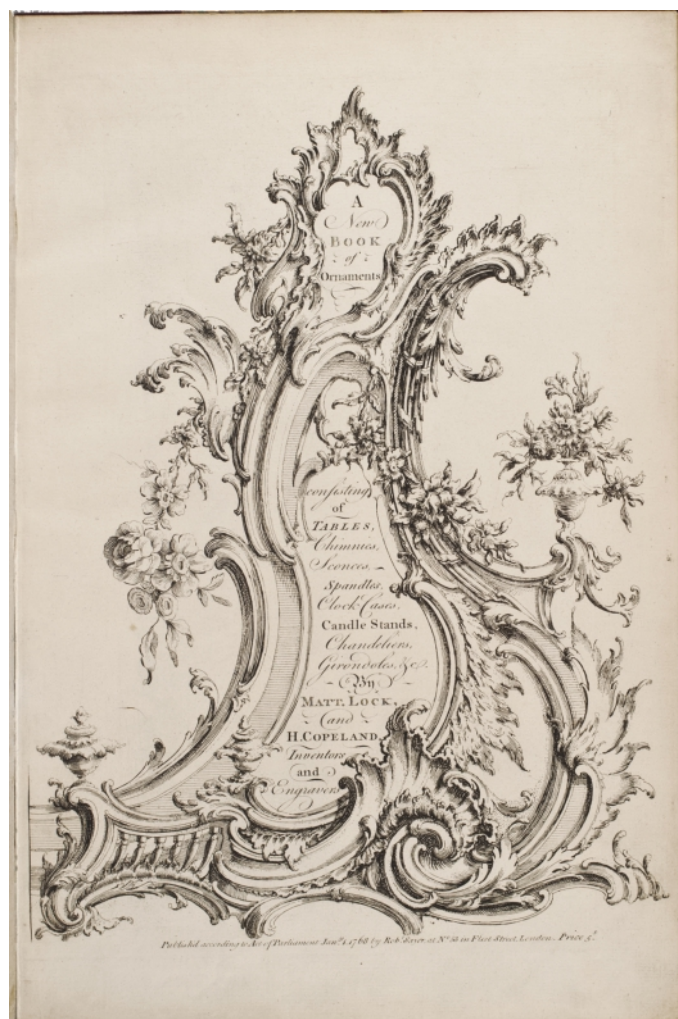 A
New
BOOK
of
Ornaments
consisting
of
TABLES,
Chimnies,
Sconces,
Spandles,
Clock Cases,
Candle Stands,
Chandeliers,
Girondoles, &c.
By
MATT. LOCK,
and
H. COPELAND,
Inventors
and
Engravers
Publish'd according to Act of Parliament Jany. 1. 1768 by Robt. Sayer, at No. 53 in Fleet Street, London. Price 5s.